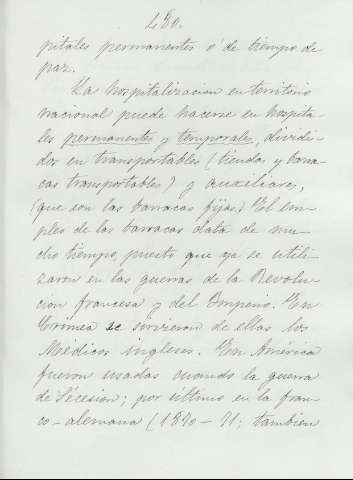 480.
pitales permanentes ó de tiempo de
paz.
La hospitalizacion en territorio
nacional puede hacerse en hospita-
les permanentes y temporales, dividi-
dos en transportables (tiendas y barra-
cas transportables) y auxiliares,
(que son las barracas fijas.) El em-
pleo de las barracas data de mu-
cho tiempo, puesto que ya se utili-
zaron en las guerras de la Revolu-
cion francesa y del Imperio. En
Crimea se sirvieron de ellas los
Médicos ingleses. En América
fueron usadas cuando la guerra
de Secesion; por último en la fran-
co-alemana (1870-71; tambien